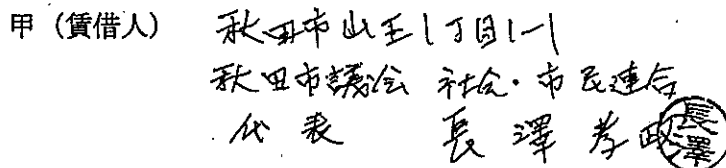 甲（賃借人） 秋田市山王1丁目1-1
秋田市議会 社会・市民連合
代表 長澤孝政
長澤